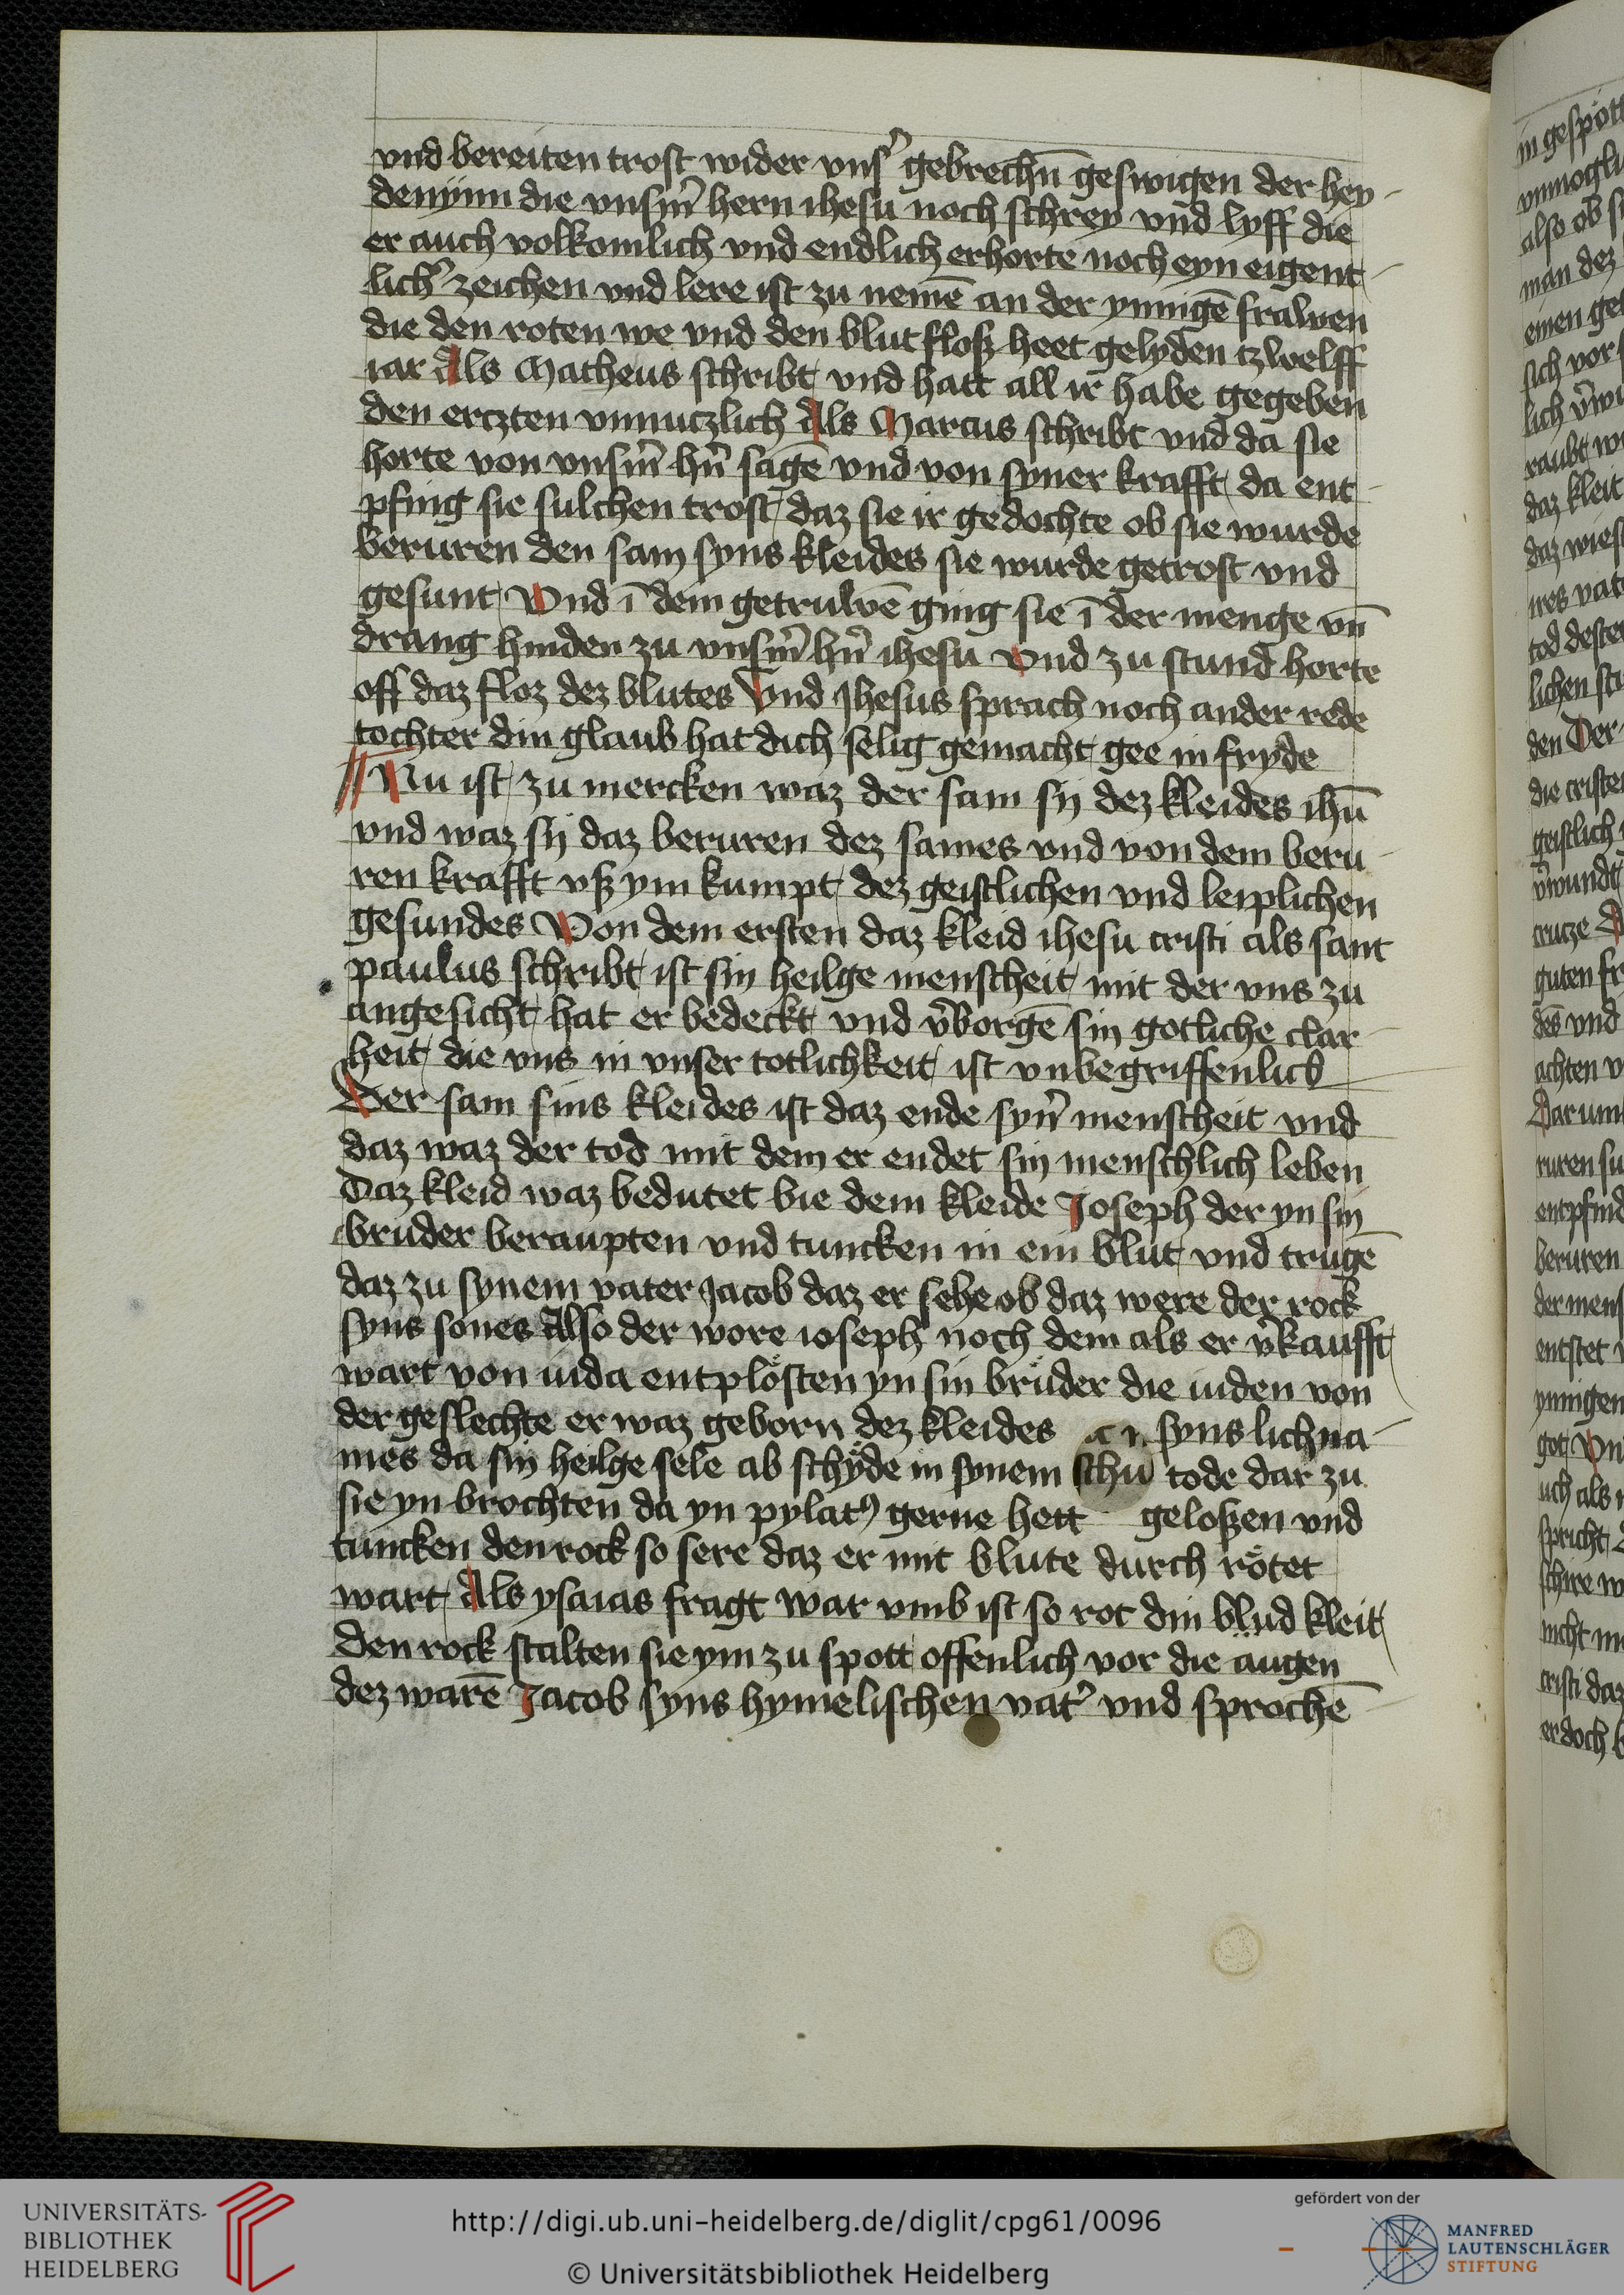 vnd bereiten trost wider vnsˀ gebrechn̄ geswigen der hey
denynn die vnsm̄ hern ihesu noch schrey vnd lyff die
er auch volkomlich vnd endlich erhorte noch eyn eigent
lichˀ zeichen vnd lere ist zu nemē an der ynnigē frawen
die den roten we vnd den blut floß heet gelyden tzwelff
iar Als Matheus schribt vnd hatt all ir habe gegeben
den erczten vnnuczlich Als Marcus schribt vnd da sie
horte von vnsm̄ hn̄ sagē vnd von syner krafft da ent
pfing sie sulchen trost daz sie ir gedochte ob sie wurde
beruren den sam syns kleides sie wurde getrost vnd
gesunt Vnd ī dem getruwē ging sie ī der menge vn̄
drang hinden zu vnsm̄ hn̄ ihesu Vnd zu stund horte
off daz floz dez blutes Vnd Jhesus sprach noch ander rede
tochter din glaub hat dich selig gemacht gee in fryde
Nu ist zu mercken waz der sam sy dez kleides ihū
vnd waz sy daz beruren dez sames vnd von dem beru
ren krafft vß ym kumpt dez geistlichen vnd leiplichen
gesundes Von dem ersten daz kleid ihesu cristi als sant
paulus schribt ist sin heilge menscheit mit der vns zu
angesicht hat er bedeckt vnd v̄borgē sin gotliche clar
heit die vns in vnser totlichkeit ist vnbegriffenlich
Der sam sins kleides ist daz ende synˀ menscheit vnd
daz waz der tod mit dem er endet sin menschlich leben
Daz kleid waz bedutet bie dem kleide Joseph der yn sin
bruder beraupten vnd tuncken in ein blut vnd trugē
daz zu synem vater Jacob daz er sehe ob daz were der rock
syns sones Also der wore ioseph noch dem als er v̄kaufft
wart von iuda entplosten yn sin bruder die iuden von
der geslechte er waz geborn dez kleides syns lichna
mes da sin heilge sele ab schyde in synem tode dar zu
sie yn brochten da yn pylatꝰ gerne hett geloßen vnd
tuncken den rock so sere daz er mit blute durch rötet
wart Als ysaias fragt war vmb ist so rot din blud kleit
Den rock stalten sie ym zu spott offenlich vor die augen
dez warē Jacob syns hymelischen vatˀ vnd sprochē
UNIVERSITÄTS-
BIBLIOTHEK
HEIDELBERG
http://digi.ub.uni-heidelberg.de/diglit/cpg61/0096
© Universitätsbibliothek Heidelberg
gefördert von der
MANFRED
LAUTENSCHLÄGER
STIFTUNG